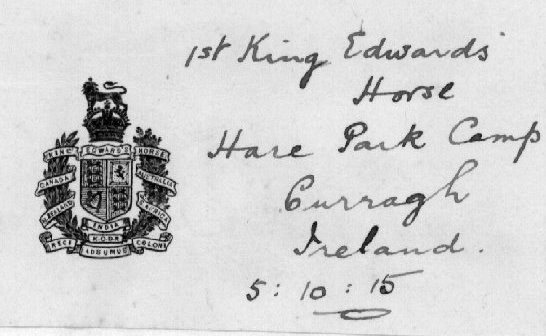 1st King Edwards'
Horse
Hare Park Camp
Curragh
Ireland.
5 : 10 : 15
KING EDWARD'S HORSE
CANADA AUSTRALIA
N. ZEALAND S. AFRICA
INDIA
K.O.D.R.
REGI ADSUMUS COLONI